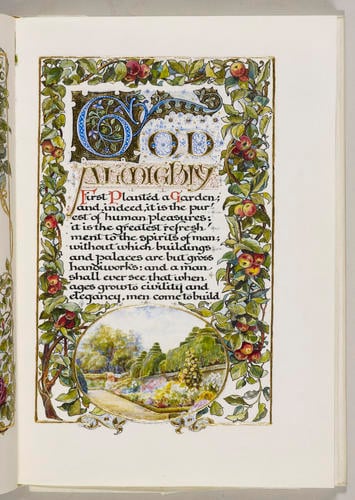 GOD
ALMIGHTY
First Planted a Garden;
and, indeed, it is the pur'
est of human pleasures;
it is the greatest refresh'
ment to the spirits of man;
without which buildings
and palaces are but gross
handiworks: and a man
shall ever see, that when
ages grow to civility and
elegancy, men come to build